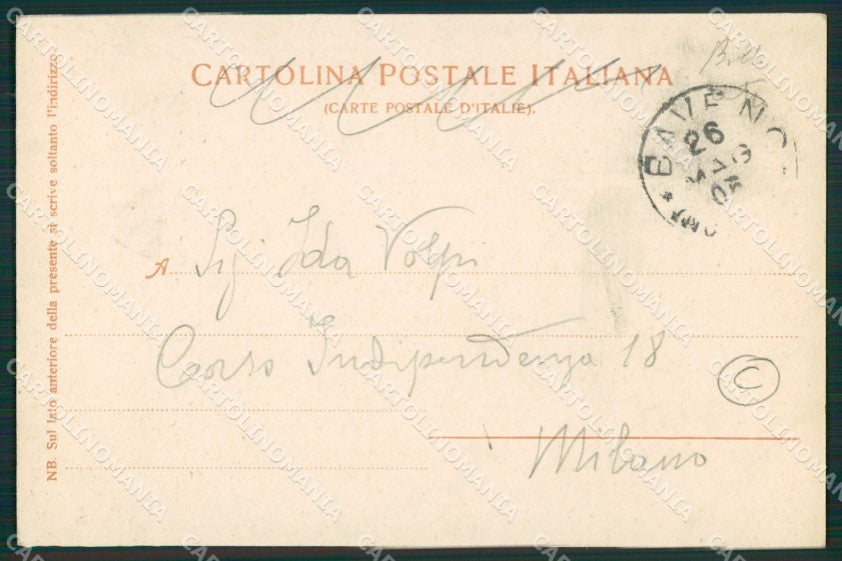 CARTOLINA POSTALE ITALIANA
(CARTE POSTALE D'ITALIE).
BAVENO
26
A Sig Ida Volpi
Corso Indipendenza 18
C
Milano
NB. Sul lato anteriore della presente si scrive soltanto l'indirizzo.
CARTOLINOMANIA